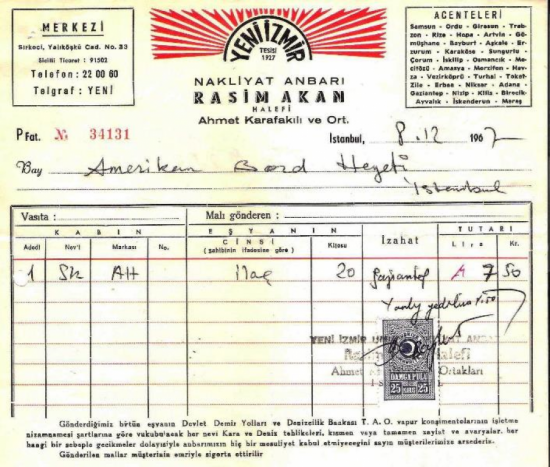 MERKEZİ
Sirkeci, Yalıköşkü Cad. No. 33
Sicilli Ticaret : 91502
Telefon : 22 00 60
Telgraf : YENİ
YENİ İZMİR
TESİSİ
1927
NAKLİYAT ANBARI
RASİM AKAN
HALEFİ
Ahmet Karafakılı ve Ort.
ACENTELERİ
Samsun - Ordu - Giresun - Trab-
zon - Rize - Hopa - Artvin - Gü-
müşhane - Bayburt - Aşkale - Er-
zurum - Karaköse - Sungurlu -
Çorum - İskilip - Osmancık - Me-
citözü - Amasya - Merzifon - Hav-
za - Vezirköprü - Turhal - Tokat-
Zile - Erbaa - Niksar - Adana -
Gaziantep - Nizip - Kilis - Birecik-
Ayvalık - İskenderun - Maraş
P Fat. № 34131
İstanbul, 8.12 1967
Bay Amerikan Bord Heyeti
İstanbul
Vasıta :
Malı gönderen :
KABIN
EŞYANIN
TUTARI
Adedi Nev'i Markası No. CİNSİ Kilosu İzahat Lira Kr.
( sahibinin ifadesine göre )
1 Sk AH İlaç 20 Gaziantep A 7 50
YENİ İZMİR
Halefi
Ahmet Ortakları
DAMGA PULU
25 KURUŞ 25
Gönderdiğimiz bütün eşyanın Devlet Demir Yolları ve Denizcilik Bankası T. A. O. vapur konşimentolarının işletme
nizamnamesi şartlarına göre vukubulacak her nevi Kara ve Deniz tehlikeleri, kısmen veya tamamen zayiat ve avaryalar, her
hangi bir sebeple gecikmeler dolayısiyle anbarımızın hiç bir mesuliyet kabul etmiyeceğini sayın müşterilerimize arzederiz.
Gönderilen mallar müşterinin emriyle sigorta ettirilir